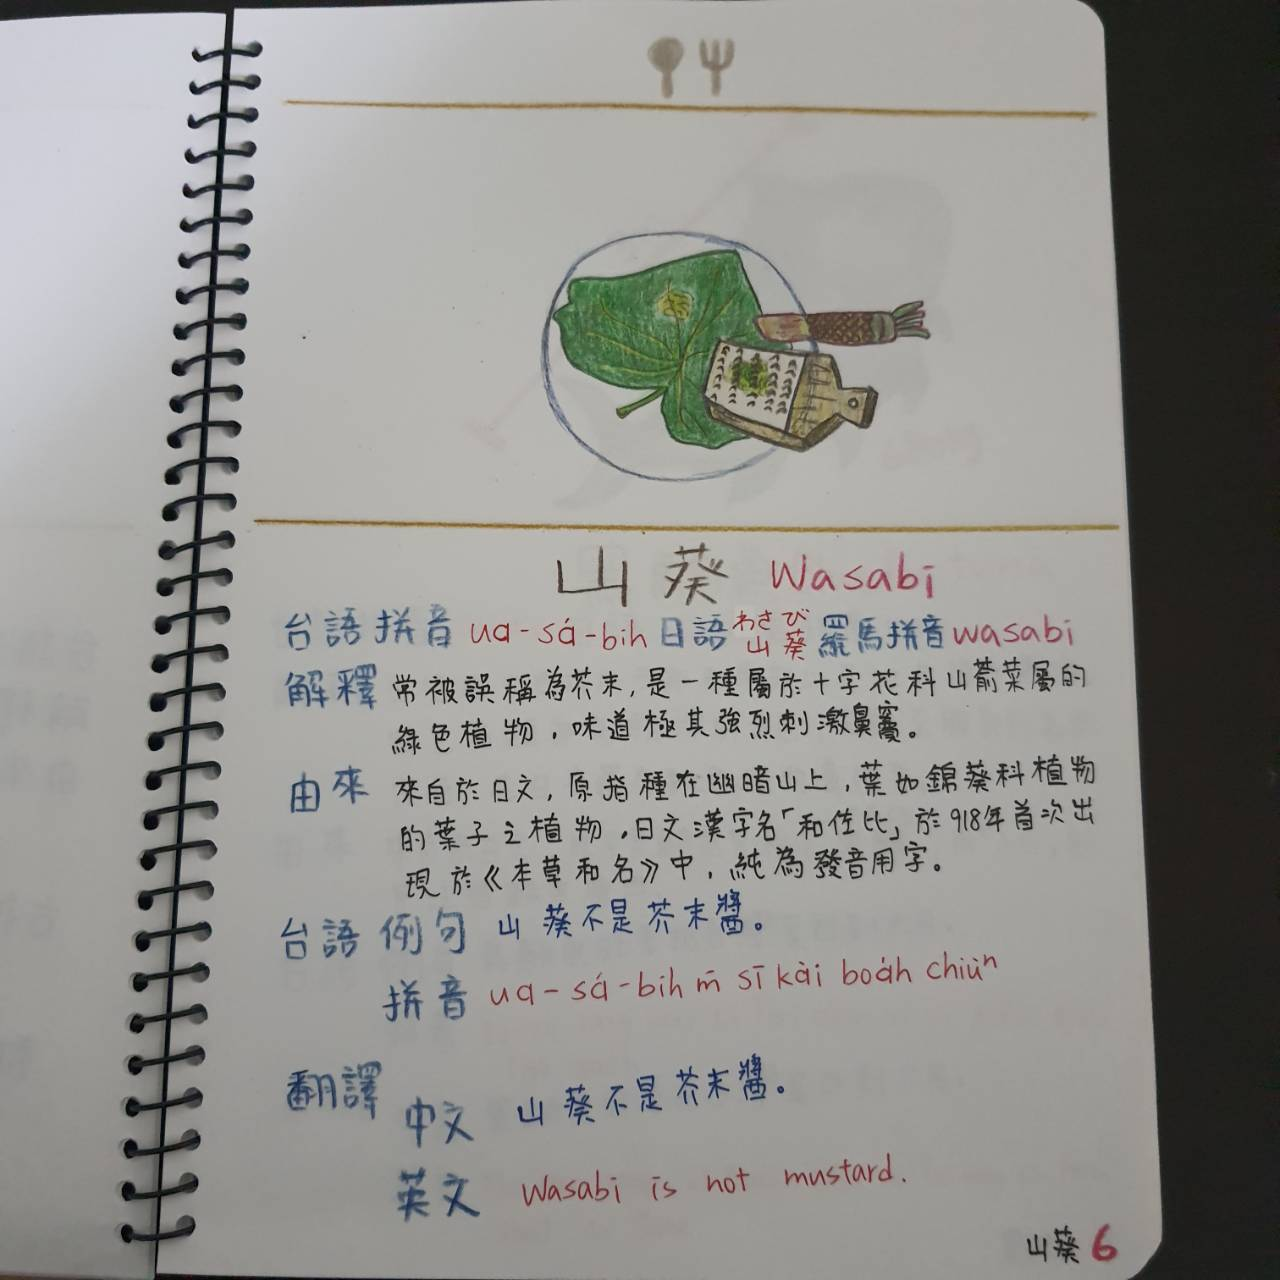 山葵 Wasabi
台語拼音 ua-sá-bih 日語 わさび 山葵 羅馬拼音 wasabi
解釋 常被誤稱為芥末,是一種屬於十字花科山萮菜屬的
綠色植物,味道極其強烈刺激鼻竇。
由來 來自於日文,原指種在幽暗山上,葉如錦葵科植物
的葉子之植物,日文漢字名「和佐比」於918年首次出
現於《本草和名》中,純為發音用字。
台語例句 山葵不是芥末醬。
拼音 ua-sá-bih m̄ sī kài boa̍h chiùⁿ
翻譯
中文 山葵不是芥末醬。
英文 Wasabi is not mustard.
山葵 6